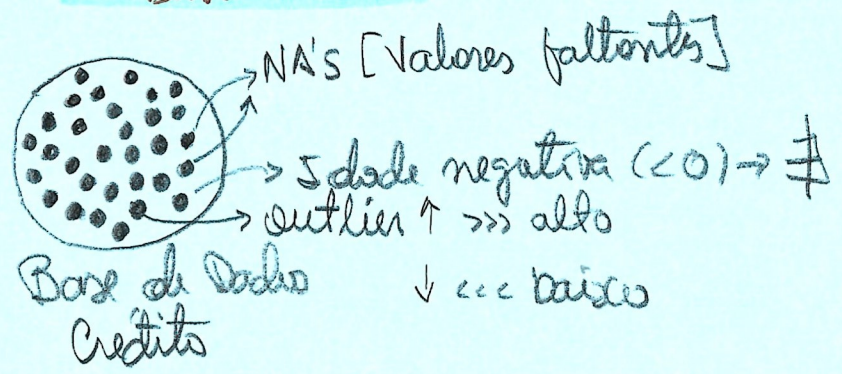 NA'S [Valores faltantes]
Idade negativa (<0) → ∄
outlier ↑ >>> alto
↓ <<< baixo
Base de Dados
Crédito